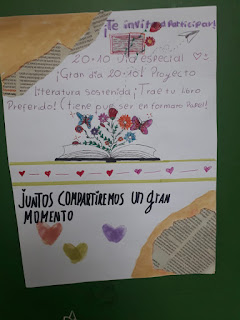 ¡Te invito a Participar!
20-10 Día especial
¡Gran día 20-10! Proyecto
literatura Sostenida ¡Trae tu libro
Preferido! (tiene que ser en formato
JUNTOS COMPARTIREMOS UN GRAN
MOMENTO